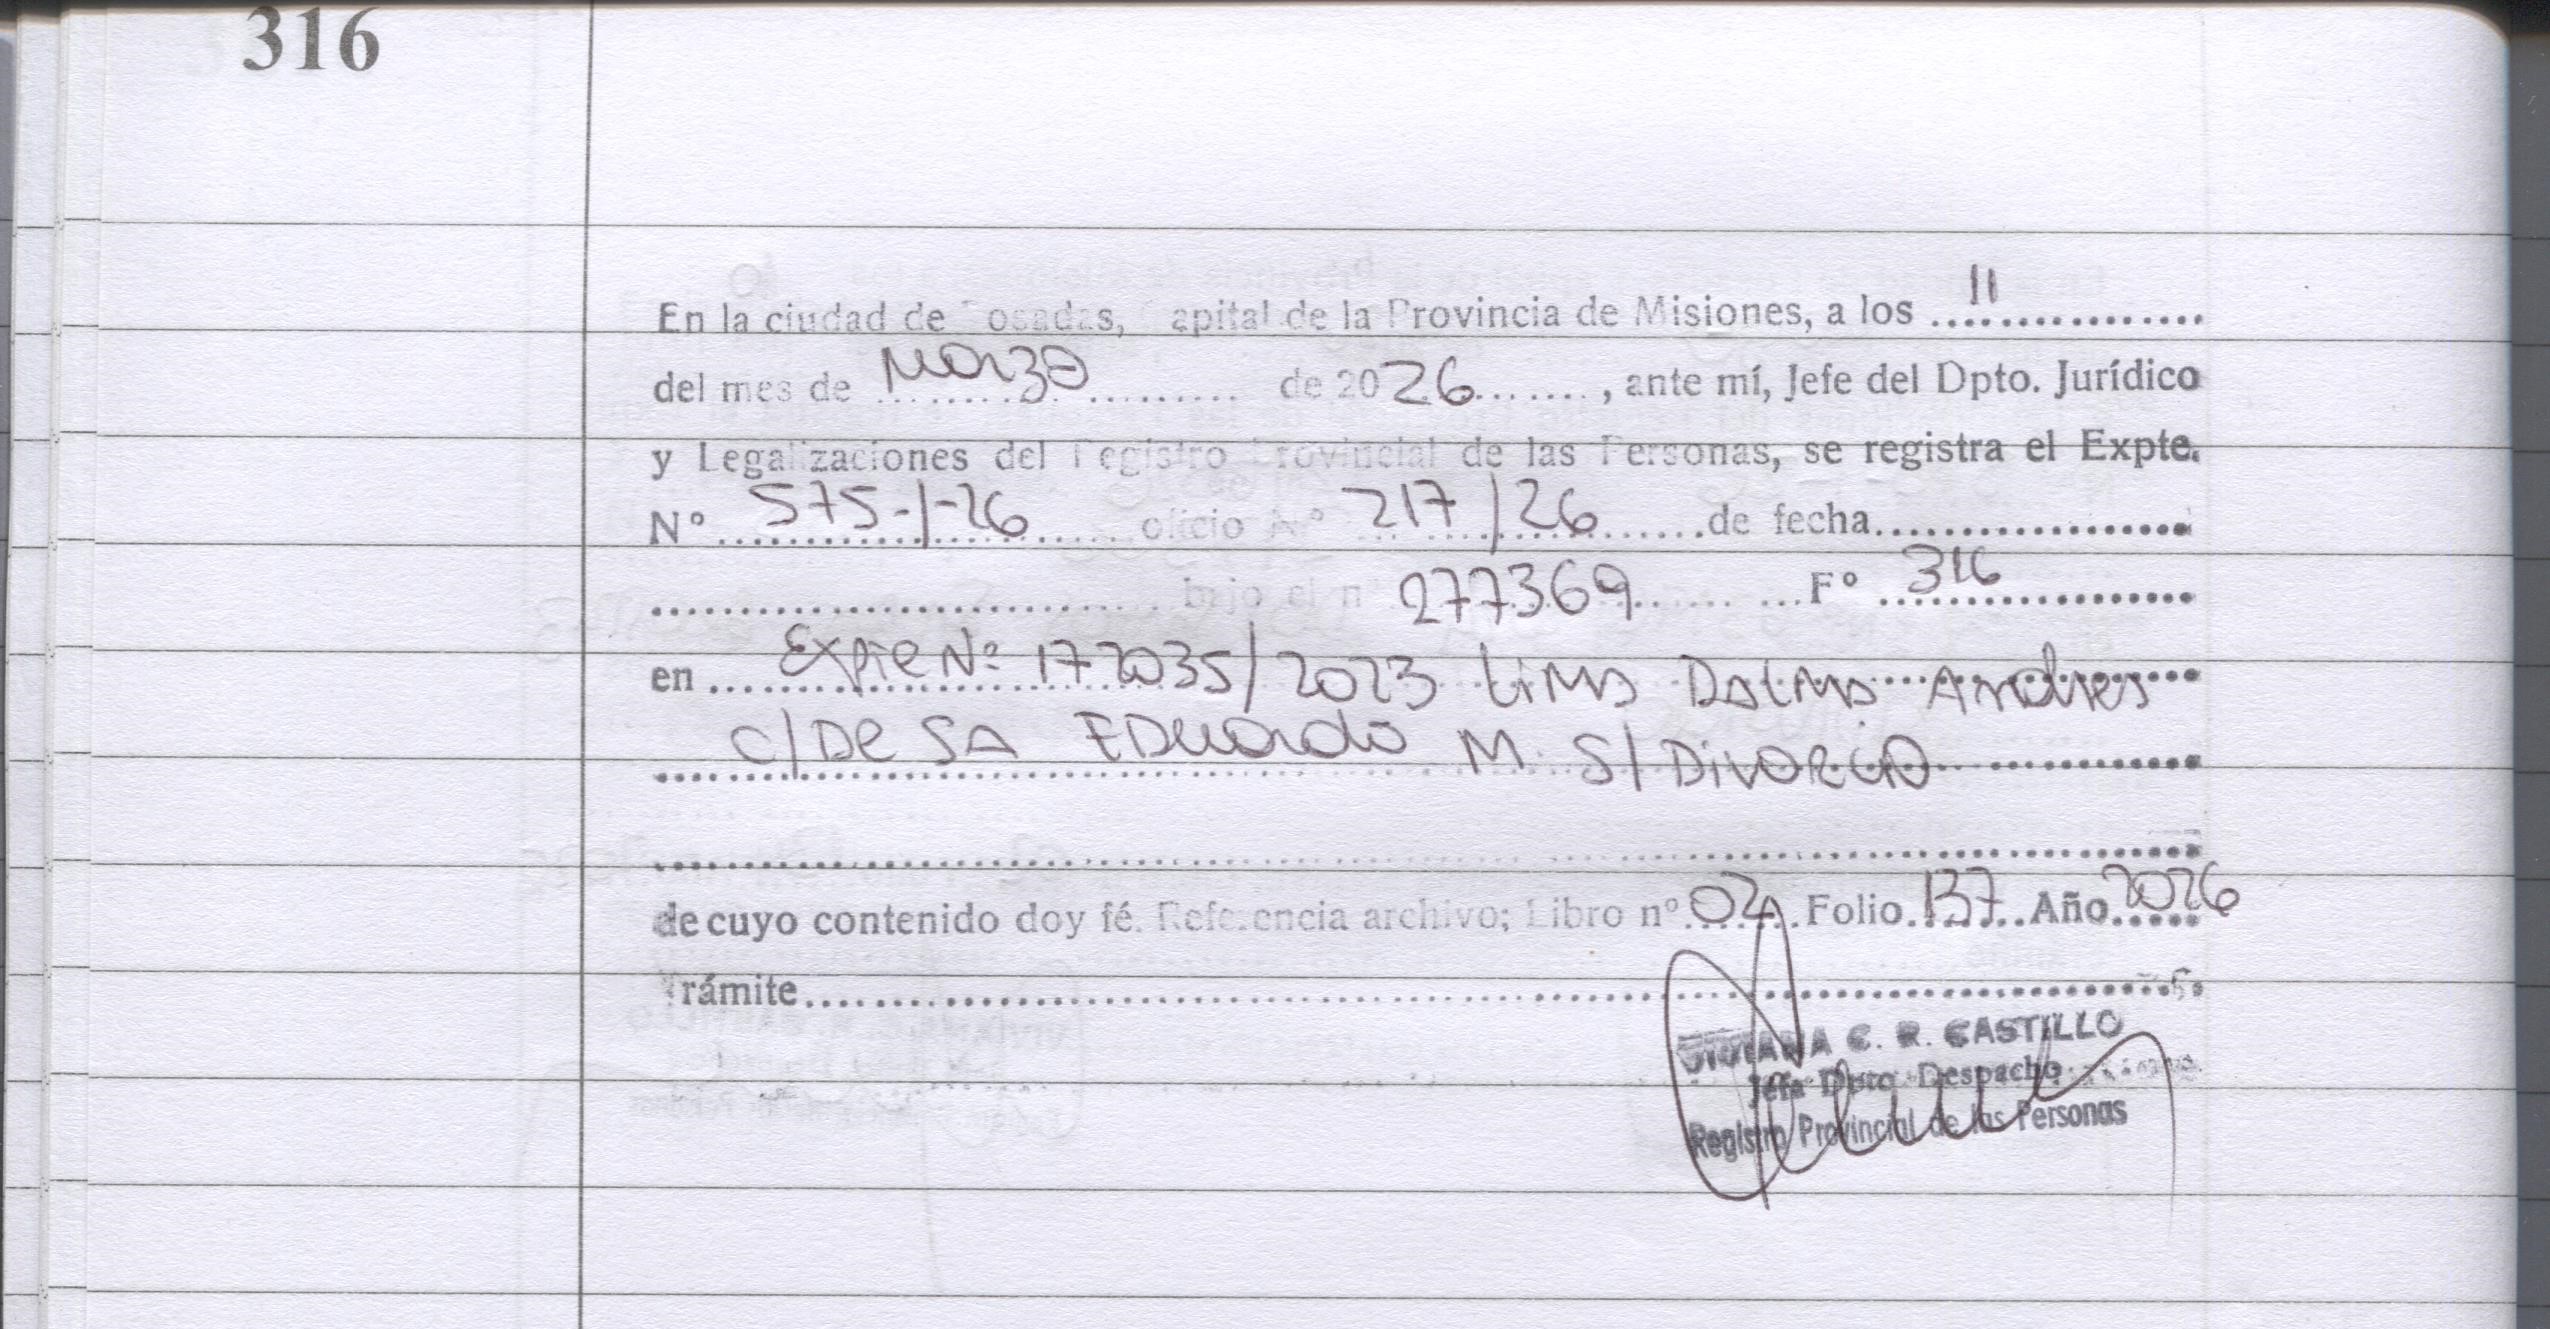 316
En la ciudad de Posadas, Capital de la Provincia de Misiones, a los 11
del mes de Marzo de 2026, ante mí, Jefe del Dpto. Jurídico
y Legalizaciones del Registro Provincial de las Personas, se registra el Expte.
Nº 575-1-26 oficio Nº 217/26 de fecha
bajo el nº 277369 Fº 316
en Expte Nº 172035/2023 Lima Dalma Andrea
c/ De SA EDuardo M. S/ Divorcio
de cuyo contenido doy fé. Referencia archivo; Libro nº 02 Folio 137 Año 2026
Trámite
VIVIANA C. R. CASTILLO
Jefa Dpto. Despacho
Registro Provincial de las Personas